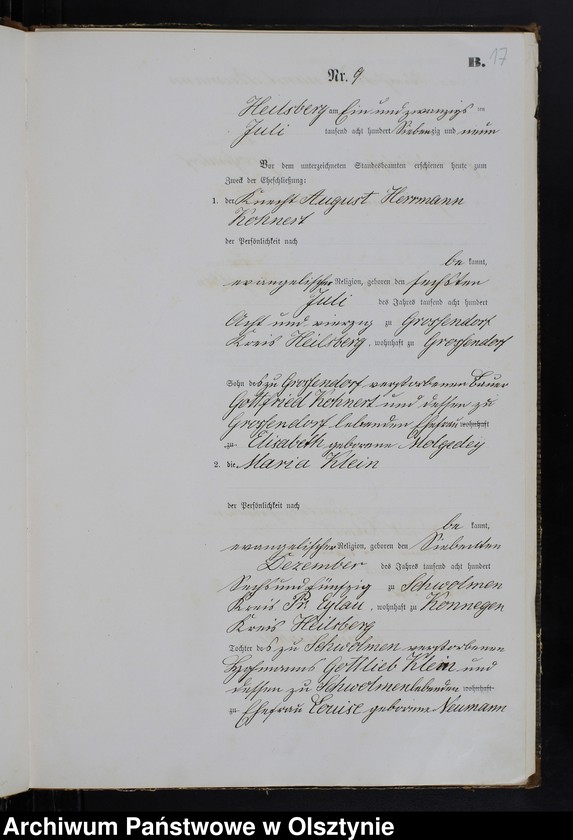 B. 17
Nr. 9.
Heilsberg am Ein und zwanzigs ten
Juli tausend acht hundert Siebenzig und neun
Vor dem unterzeichneten Standesbeamten erschienen heute zum
Zweck der Eheschließung:
1. der Knecht August Herrmann
Kohnert
der Persönlichkeit nach
be kannt,
evangelischer Religion, geboren den sechsten
Juli des Jahres tausend acht hundert
Acht und vierzig zu Grossendorf
Kreis Heilsberg, wohnhaft zu Grossendorf
Sohn des zu Grossendorf verstorbenen Bauer
Gottfried Kohnert und dessen zu
Grossendorf lebenden Ehefrau wohnhaft
zu Elisabeth geborene Molgedey
2. die Maria Klein
der Persönlichkeit nach
be kannt,
evangelischer Religion, geboren den Siebenten
Dezember des Jahres tausend acht hundert
Sechs und fünfzig zu Schwolmen
Kreis Pr. Eylau, wohnhaft zu Konnegen
Kreis Heilsberg
Tochter des zu Schwolmen verstorbenen
Hofmanns Gottlieb Klein und
dessen zu Schwolmen lebenden wohnhaft
zu Ehefrau Louise geborene Neumann
Archiwum Państwowe w Olsztynie